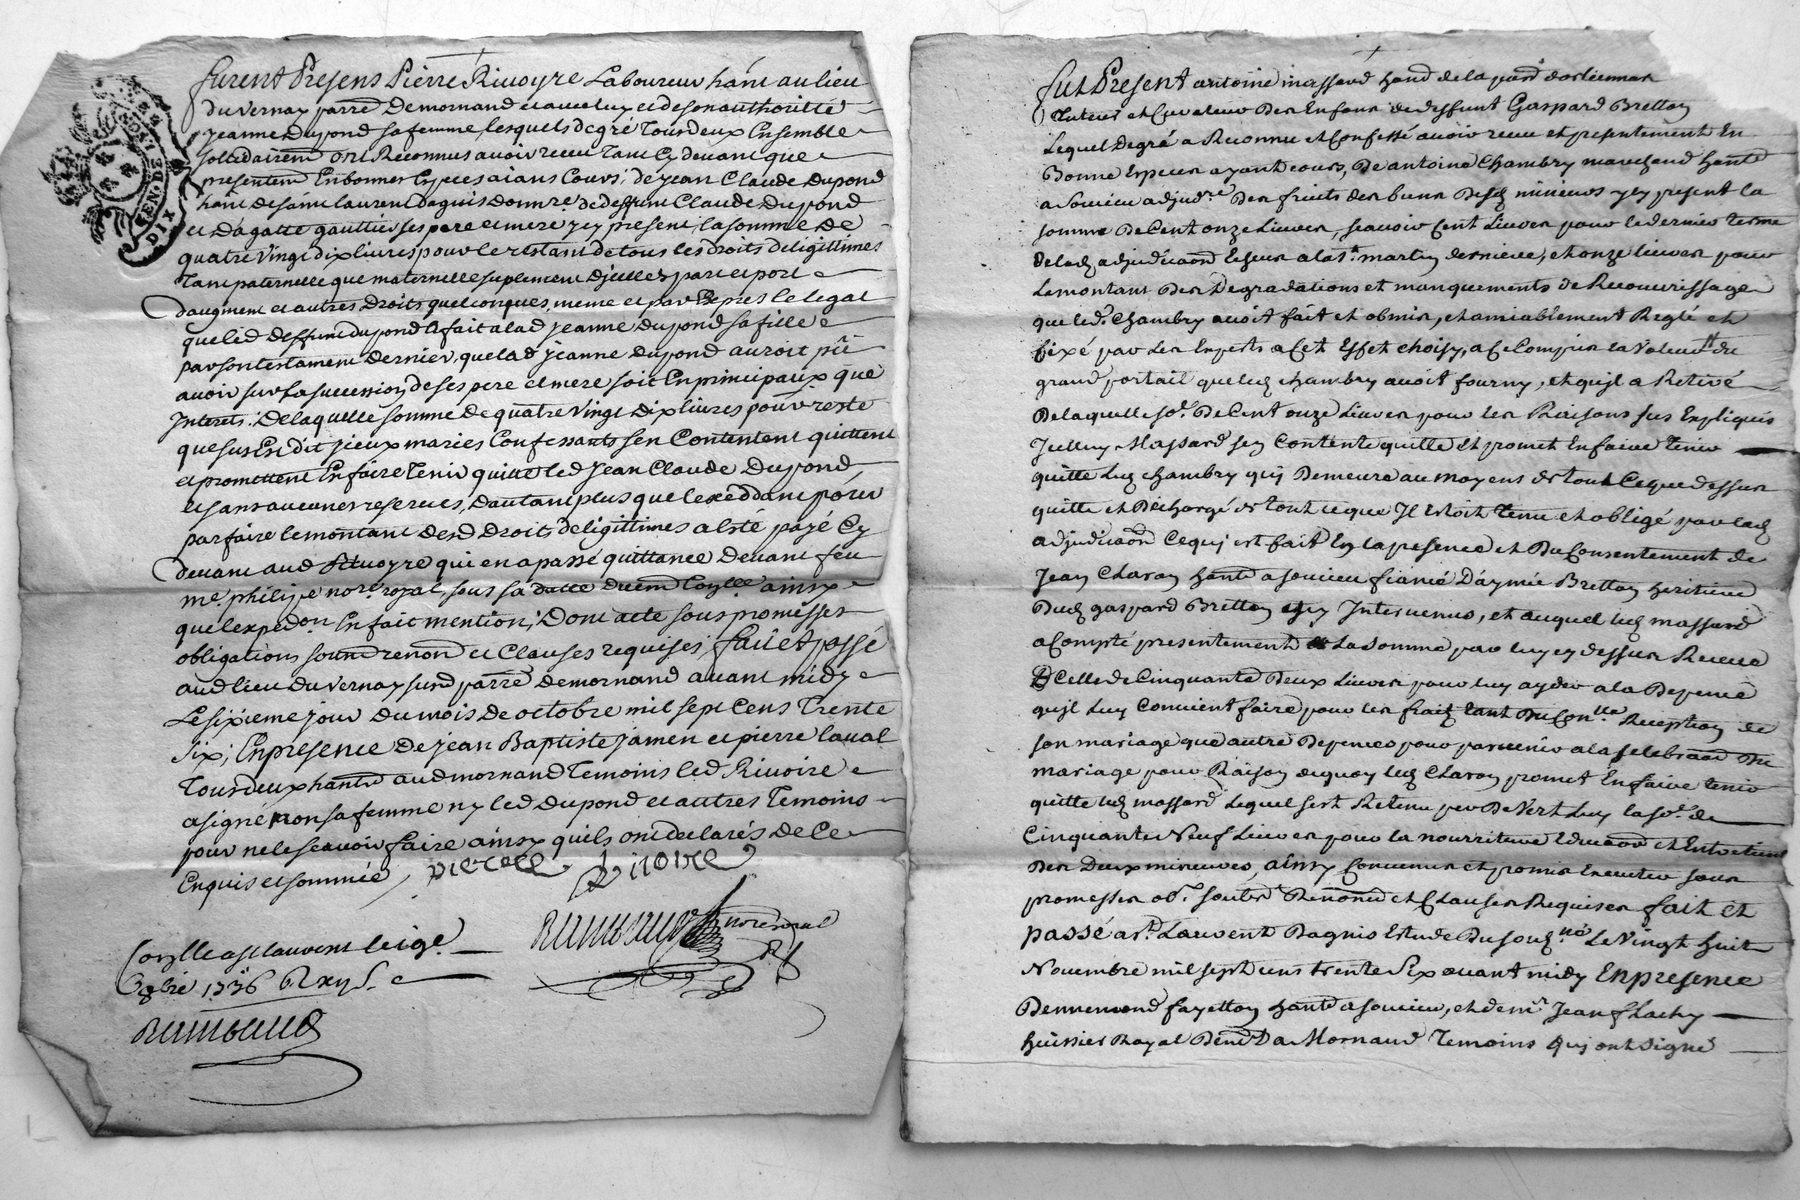 furent Presens Pierre Rivoyre Laboureur hant au lieu
du vernay parre De mornand et avec luy et de son authoritté
jeanne Dupond sa femme lesquels de gré Tous deux Ensemble
sollidairemt ont Reconnus avoir receu tant Cy devant que
presentemt En bonnes Especes aians Cours, de jean Claude Dupond
hant de saint laurent Dagnis donre. de deffunt Claude Dupond
et D'agatte gauttier ses pere et mere y ey present, la somme De
quatre vingt dix livres pour le restant de tous les Droits de ligittimes
Tant paternelle que maternelle suplement D'jcelles part et port
daugment et autres Droits quelconques, meme et par Exprès le legat
que led deffunt dupond a fait a lad jeanne dupond sa fille
par son testament dernier, que lad jeanne Dupond auroit pû
avoir sur la succession de ses pere et mere soit En principaux que
Interets. De laquelle somme de quatre vingt dix livres pour reste
que sus Est dit jceux maries Confessants sen Contentent quittent
et promettent En faire Tenir quitte led jean Claude Dupond,
et sans aucunes reserves, Dautant plus que l'exceddant pour
parfaire le montant desd Droits de ligittimes a esté payé Cy
devant aud Rivoyre qui en a passé quittance Devant feu
me. philipe nore. royal, sous sa datte duemt Conllé ainsy
que l'expedon En fait mention; Dont acte sous promesses
obligations soumd renond et Clauses requises, fait et passé
aud lieu du vernay sur lad parre De mornand avant midy
Le sixieme jour du mois de octobre mil sept Cens Trente
six; En presence de jean Baptiste jamen et pierre laval
Tous deux hants aud mornand Temoins led Rivoire
a signé non sa femme ny led dupond et autres Temoins
pour ne le scavoir faire ainsy quils ont declarés de Ce
Enquis et sommés,
pierre Rivoire
nore royal
Conllé a st laurent le ige.
8bre 1736
fut Present antoine massard hand de la parre dorliennas
Tuteur et Curateur Des Enfans de deffunt Gaspard Bretton
Lequel De gré a Reconnu et Confessé avoir receu et presentement En
Bonne Especes ayant cours, De antoine Chambry marchand hant
a Soucieu adjudre Des fruits des biens Desd mineurs y ey present la
somme De Cent onze Livres, scavoir Cent Livres pour le dernier terme
de lad adjudicaon Echeu a la st. martin derniere, et onze livres pour
Le montant Des Degradations et manquements de Recouvrissage
que led. Chambry avoit fait et obmis, et amiablement Reglé et
fixé par Les Experts a Cet Effet choisy, a Ce Compris la Valeur du
grand portail que led chambry avoit fourny, et quil a Retiré
De laquelle so. De Cent onze Livres pour les Raisons sus Expliqués
Jcelluy Massard sen Contente quitte Et promet En faire tenir
quitte Led chambry quy Demeure au moyens de tout Ceque dessus
quitte et Déchargé de tout ceque Il Estoit tenu et obligé par lad
adjudicaon Cequy est fait En la presence et Du Consentement de
Jean Claron hant a soucieu fiancé D'aymée Bretton heritiere
Dud gaspard Bretton y ey Intervenus, et auquel led massard
a Compté presentement La Somme par luy cy dessus Receue
Celle de Cinquante Deux Livres pour luy ayder a la Depence
quil Luy Convient faire pour les fraix tant Du Conlle Reception de
son mariage que autre Depences pour parvenir a la selebraon Du
mariage pour Raison dequoy led Claron promet En faire tenir
quitte led massard Lequel sest Retenu par Devert Luy la so. de
Cinquante Neuf Livres pour la nourriture Educaon et Entretient
Des Deux mineures, ainsy Convenus et promis Executer sous
promesses ob. soubt Renond et Clauses Requises fait et
passé a st Laurent Dagnis Estude Du soud no Le Vingt huit
Novembre mil sept cens trente Six avant midy En presence
Dennemond fayetton hant a soucieu, et de me Jean flachy
huissier Royal Demt a Mornand Temoins quy ont signé